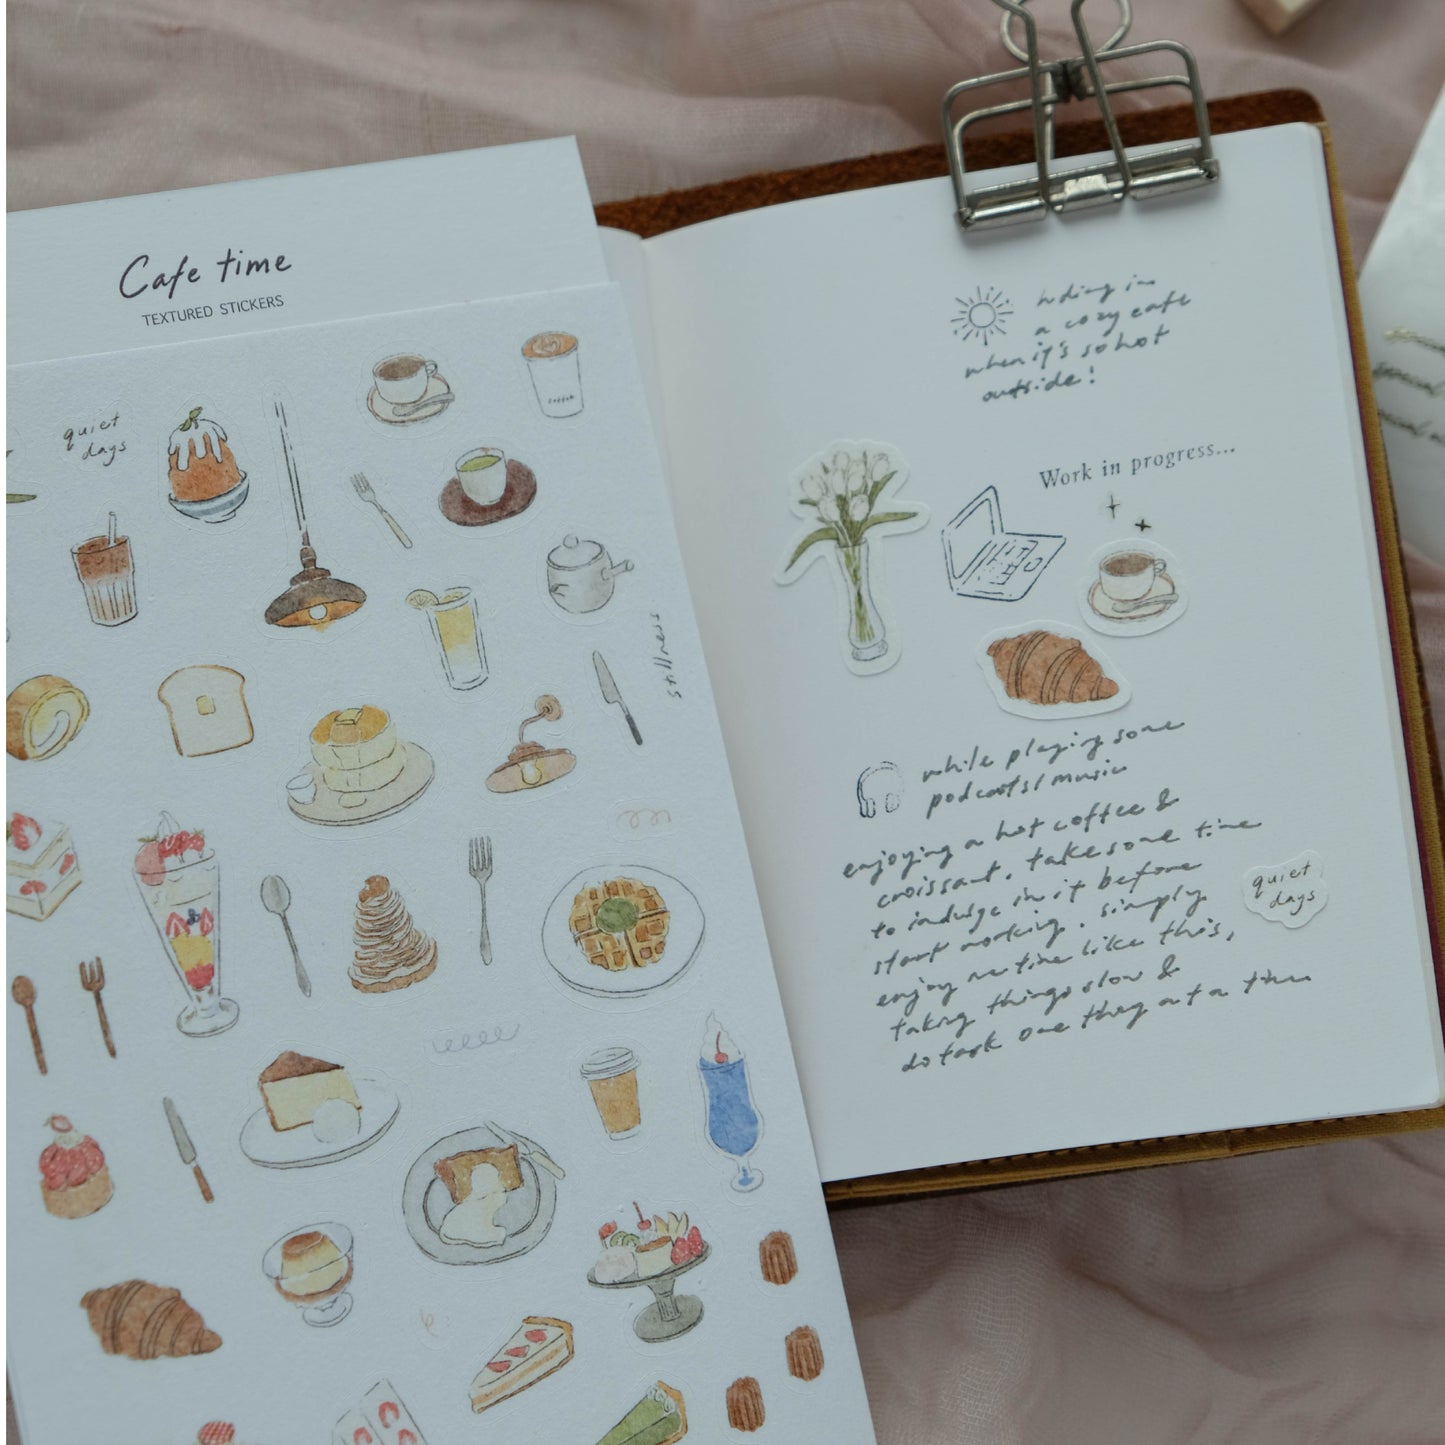 Cafe time
TEXTURED STICKERS
quiet
days
coffee
stillness
hiding in
a cozy cafe
when it's so hot
outside!
Work in progress...
while playing some
podcasts/music
enjoying a hot coffee &
croissant. take some time
to indulge in it before
start working. simply
enjoy me time like this,
taking things slow &
do task one thing at a time
quiet
days
special